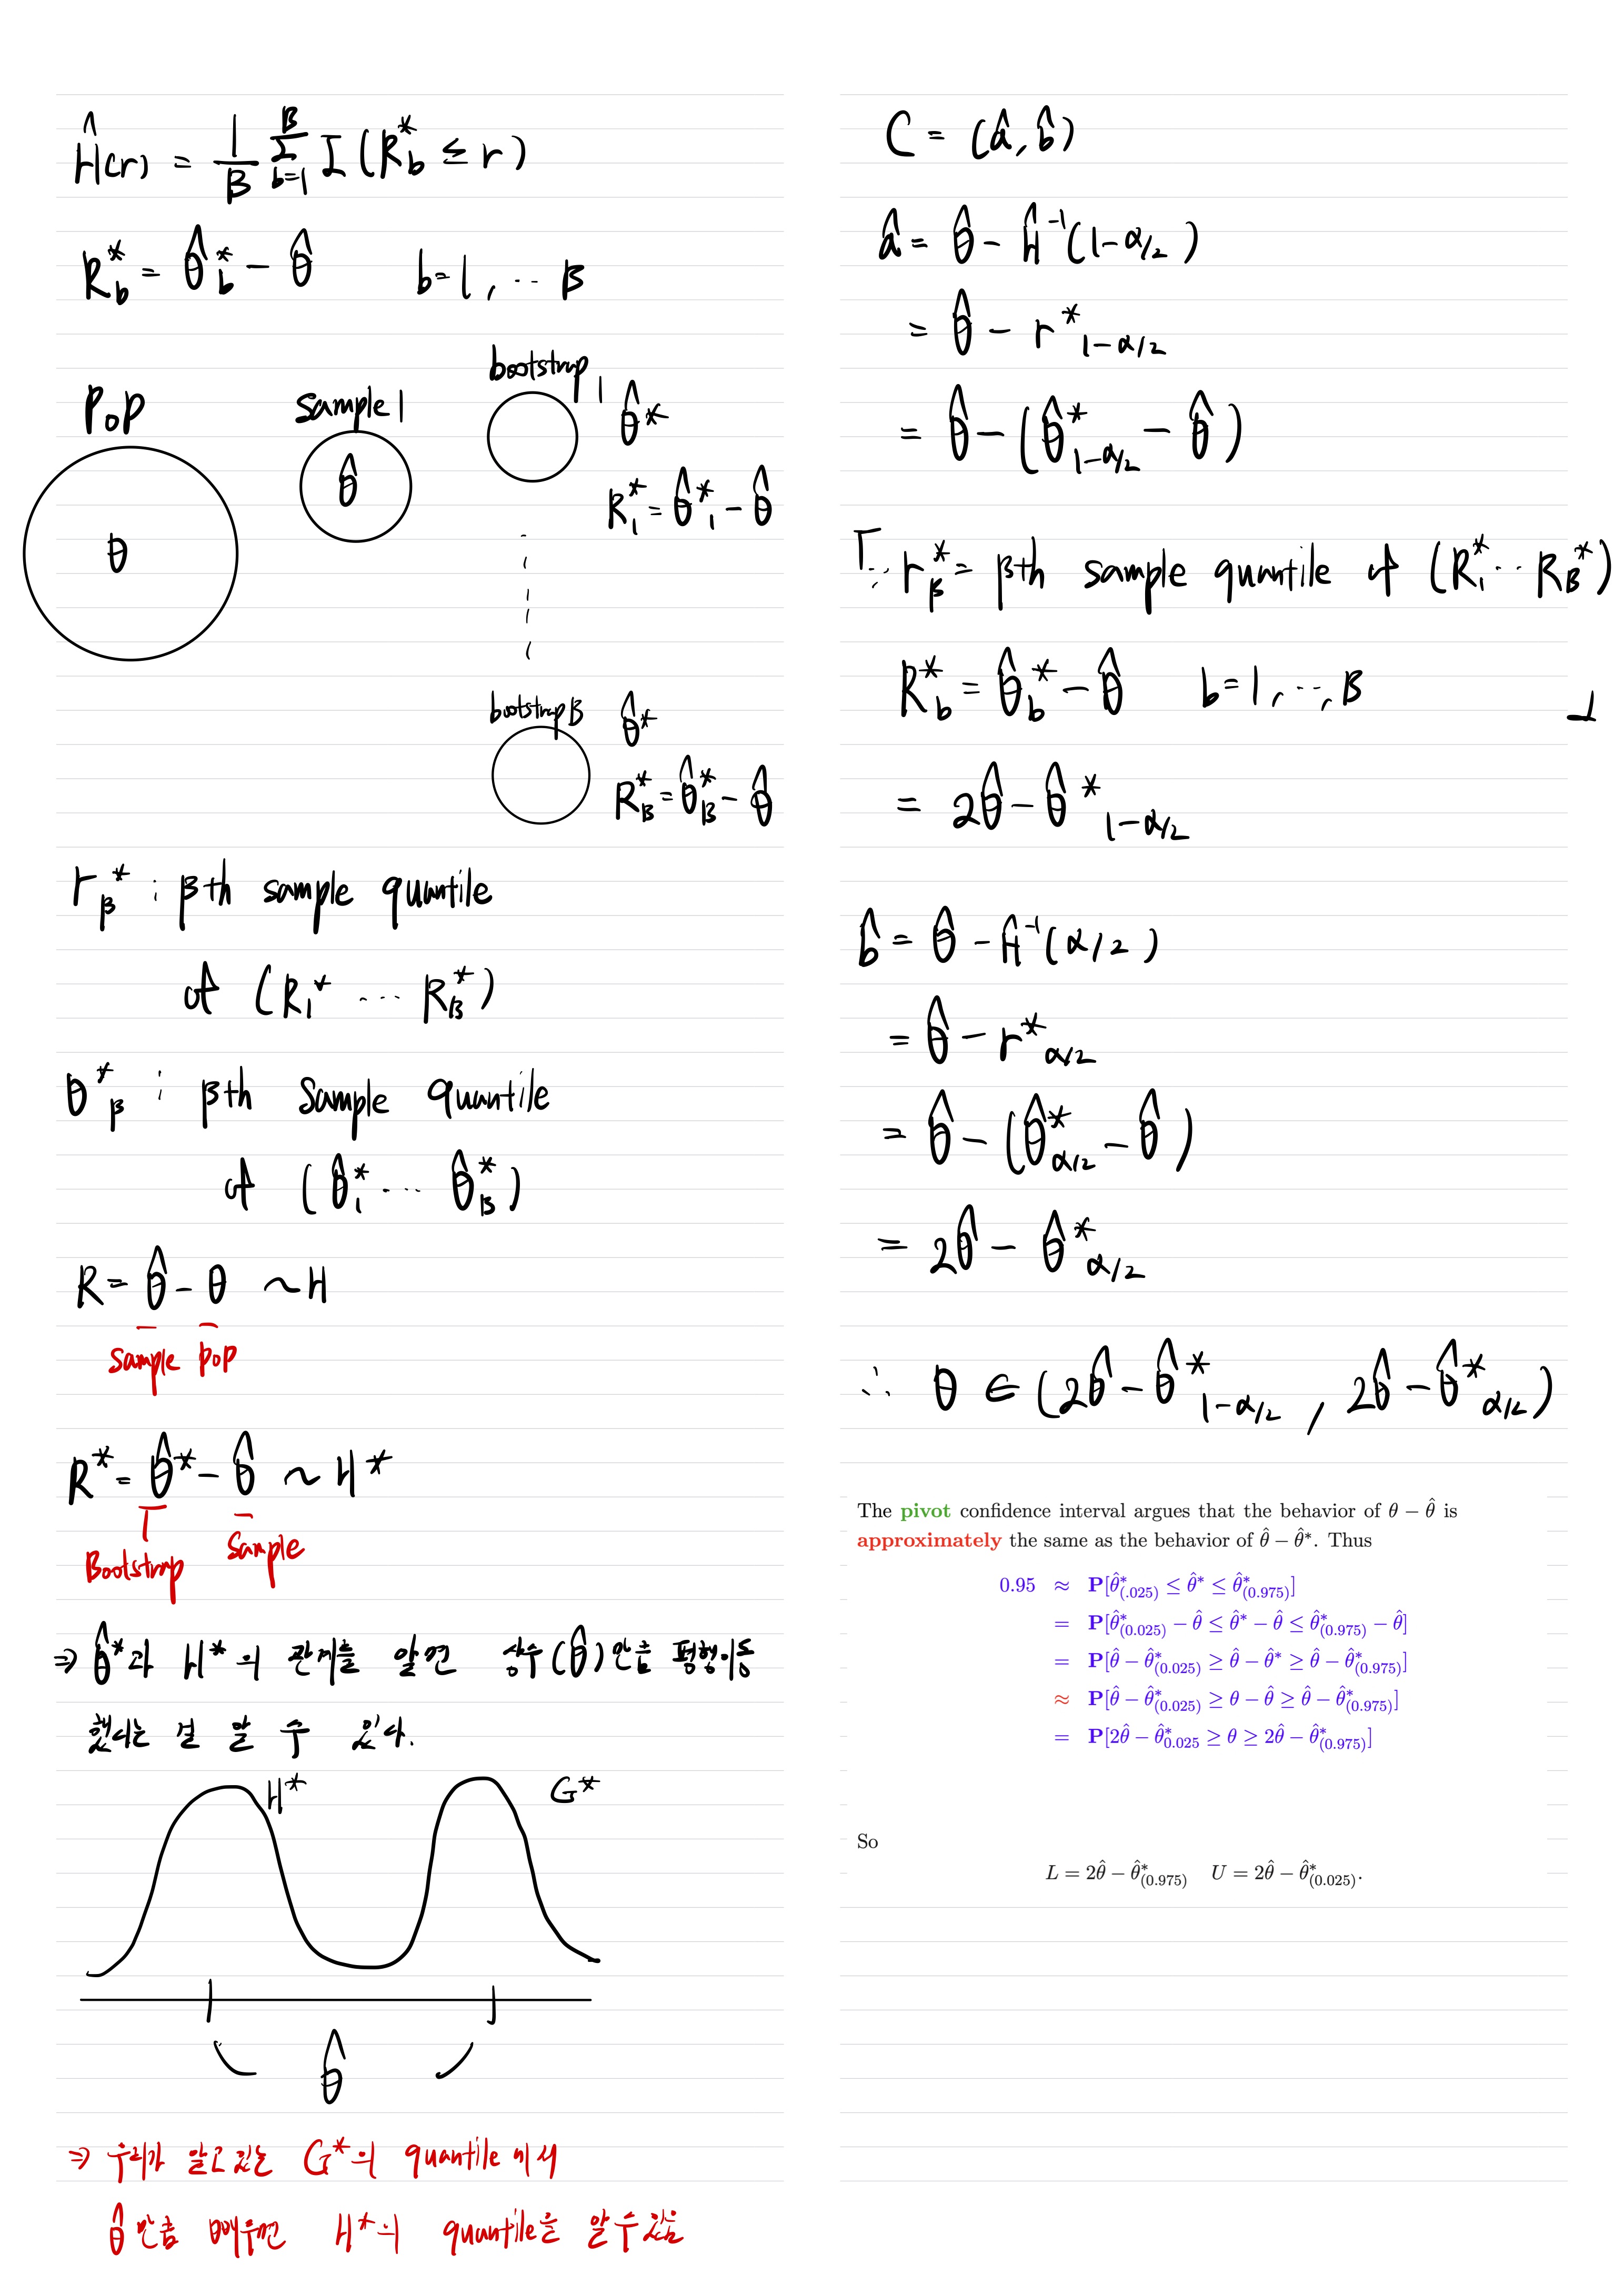 Ĥ(r) = 1/B Σ_{b=1}^{B} I(R*_b ≤ r)
R*_b = θ̂*_b − θ̂   b=1, ⋯ B
Pop
sample 1
bootstrap 1
θ
θ̂
θ̂*
R*_1 = θ̂*_1 − θ̂
bootstrap B
θ̂*
R*_B = θ̂*_B − θ̂
r*_β : βth sample quantile
of (R*_1 ⋯ R*_B)
θ*_β : βth sample quantile
of (θ̂*_1 ⋯ θ̂*_B)
R = θ̂ − θ ~ H
sample pop
R* = θ̂* − θ̂ ~ H*
Bootstrap sample
⇒ θ̂*과 H*의 관계를 알면 상수(θ̂)만큼 평행이동
했다는 걸 알 수 있다.
H*
G*
θ̂
⇒ 우리가 알고 있는 G*의 quantile에서
θ̂만큼 빼주면 H*의 quantile을 알 수 있음
C = (â, b̂)
â = θ̂ − Ĥ⁻¹(1−α/2)
= θ̂ − r*_{1−α/2}
= θ̂ − (θ̂*_{1−α/2} − θ̂)
∵ r*_β = βth sample quantile of (R*_1 ⋯ R*_B)
R*_b = θ̂*_b − θ̂   b=1, ⋯, B
= 2θ̂ − θ̂*_{1−α/2}
b̂ = θ̂ − Ĥ⁻¹(α/2)
= θ̂ − r*_{α/2}
= θ̂ − (θ̂*_{α/2} − θ̂)
= 2θ̂ − θ̂*_{α/2}
∴ θ ∈ (2θ̂ − θ̂*_{1−α/2}, 2θ̂ − θ̂*_{α/2})
The pivot confidence interval argues that the behavior of θ − θ̂ is
approximately the same as the behavior of θ̂ − θ̂*. Thus
0.95 ≈ P[θ̂*_{(.025)} ≤ θ̂* ≤ θ̂*_{(0.975)}]
= P[θ̂*_{(0.025)} − θ̂ ≤ θ̂* − θ̂ ≤ θ̂*_{(0.975)} − θ̂]
= P[θ̂ − θ̂*_{(0.025)} ≥ θ̂ − θ̂* ≥ θ̂ − θ̂*_{(0.975)}]
≈ P[θ̂ − θ̂*_{(0.025)} ≥ θ − θ̂ ≥ θ̂ − θ̂*_{(0.975)}]
= P[2θ̂ − θ̂*_{0.025} ≥ θ ≥ 2θ̂ − θ̂*_{(0.975)}]
So
L = 2θ̂ − θ̂*_{(0.975)}   U = 2θ̂ − θ̂*_{(0.025)}.